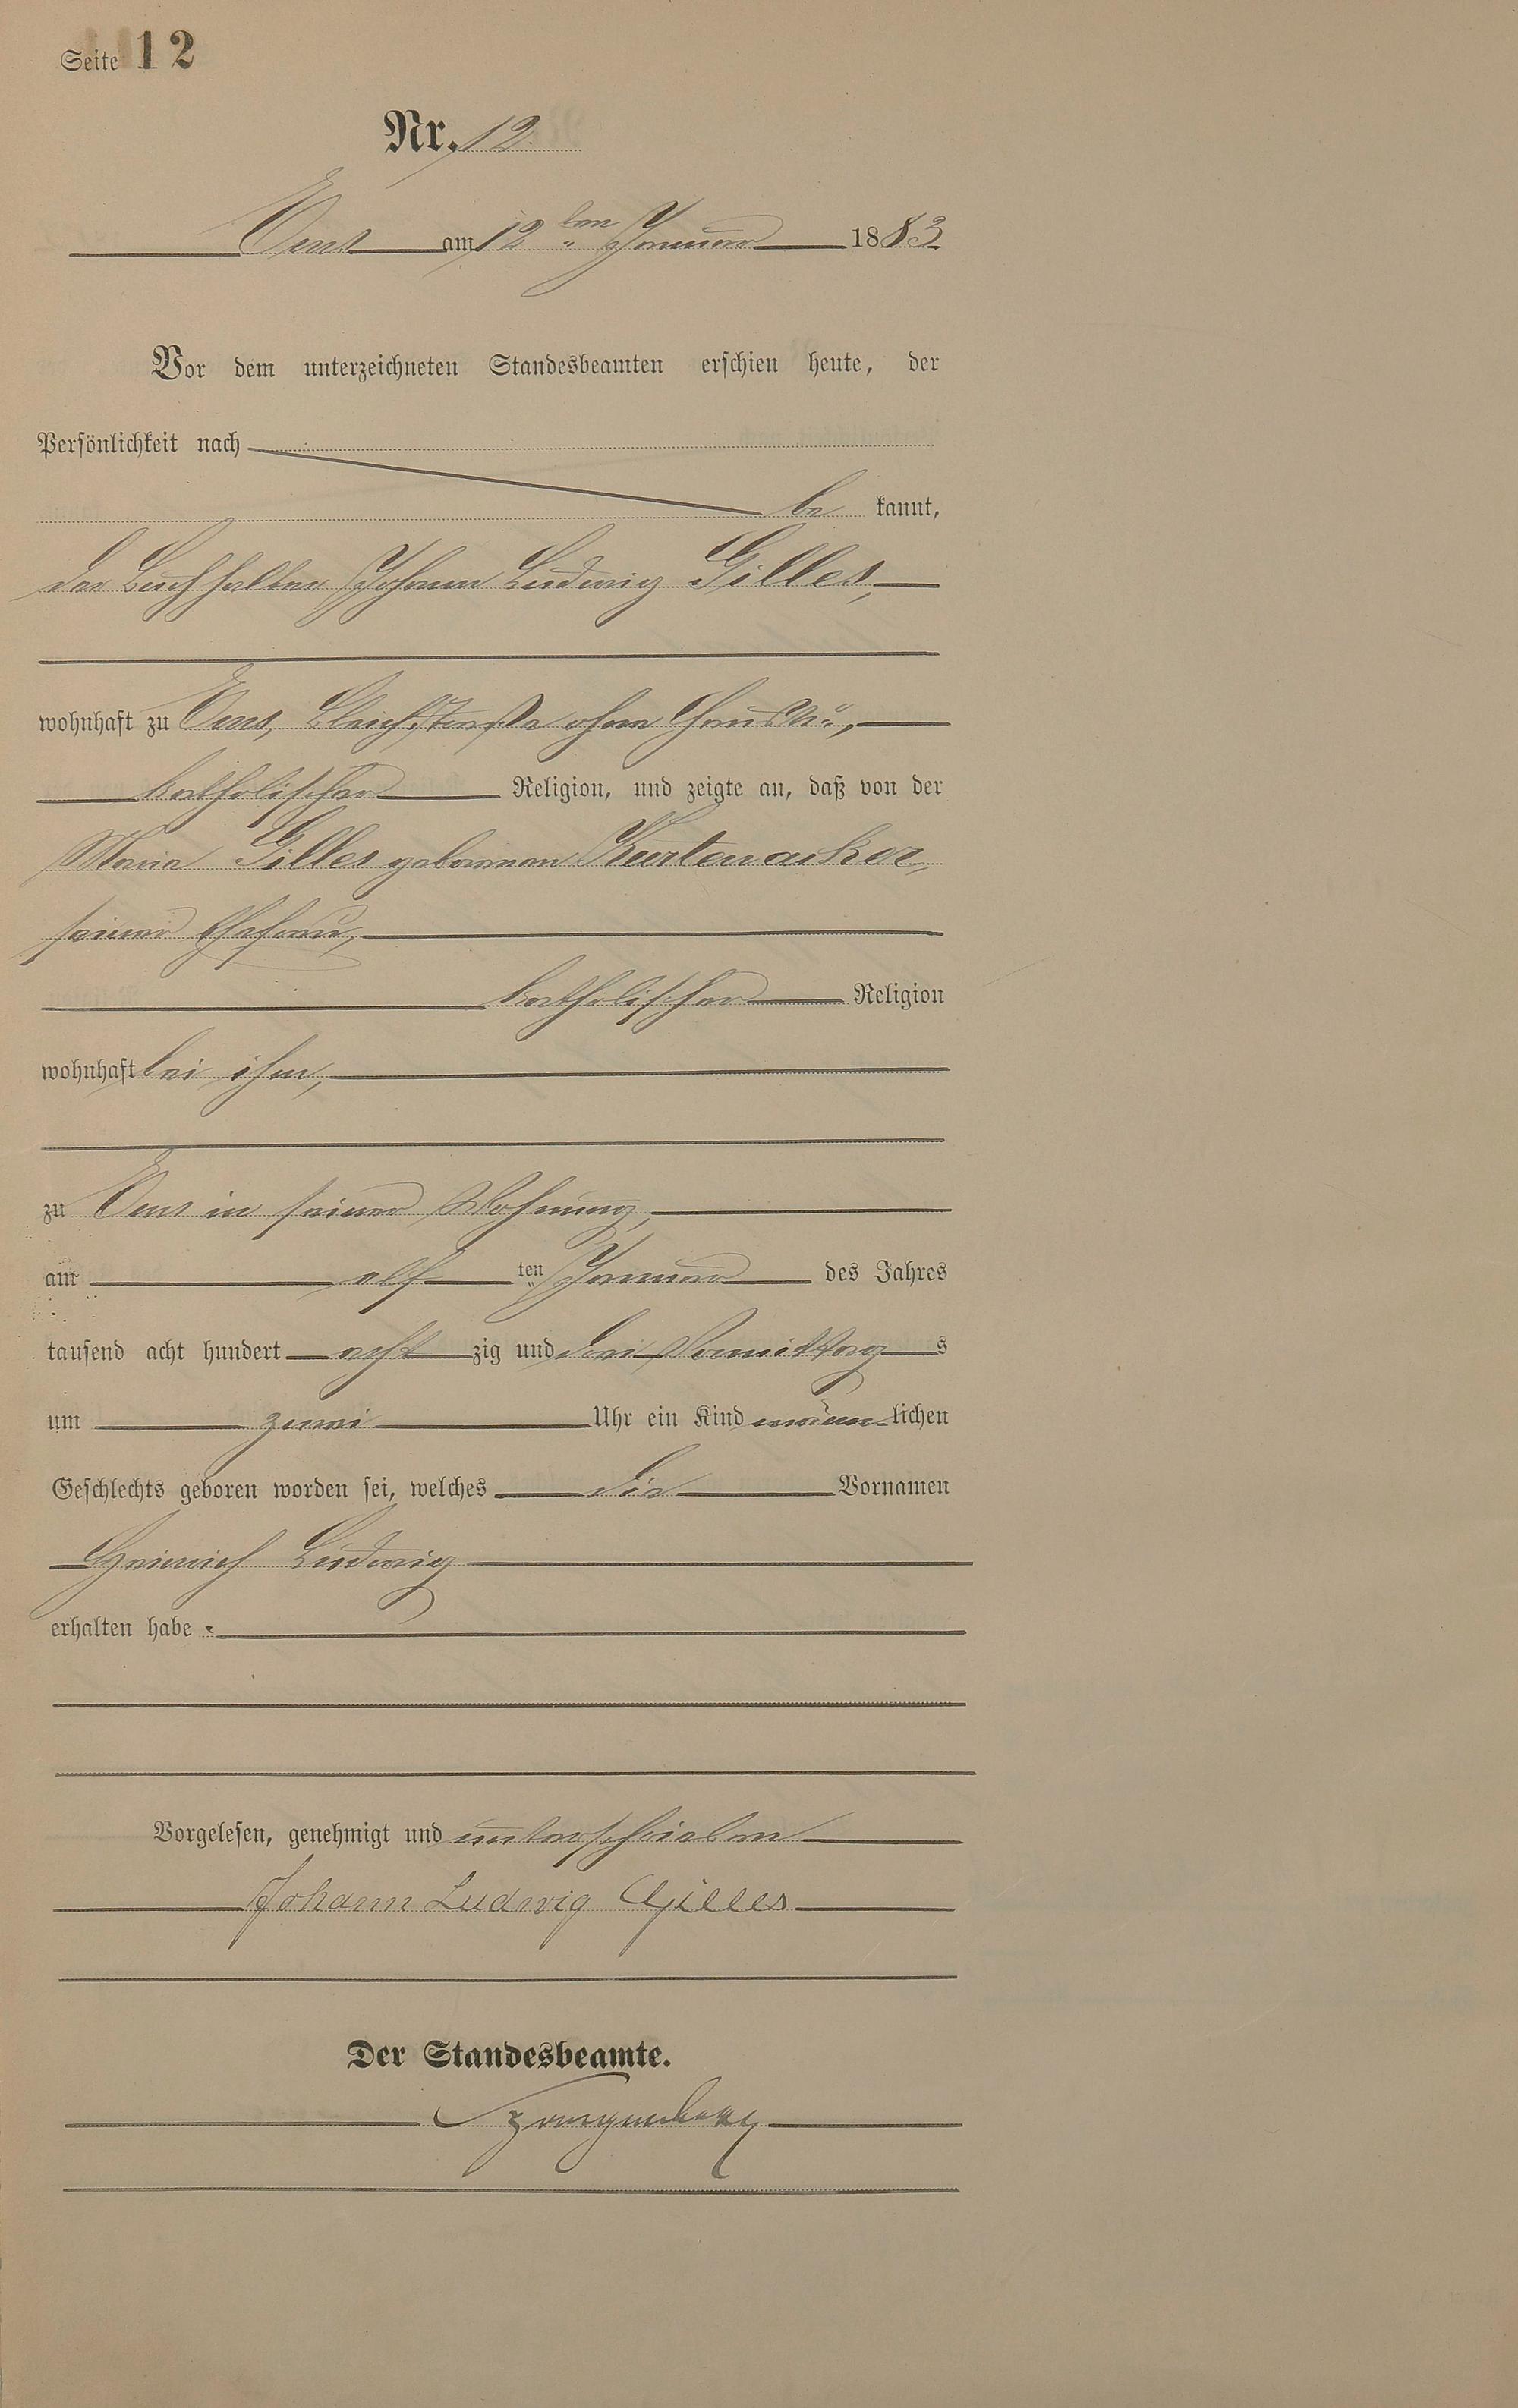 Seite 12
Nr. 12.
Ems am 12ten Januar 1883
Vor dem unterzeichneten Standesbeamten erschien heute, der
Persönlichkeit nach
be kannt,
der Buchhalter Johann Ludwig Gilles,
wohnhaft zu Ems, Bleichstraße ohne Haus No,
katholischer Religion, und zeigte an, daß von der
Maria Gilles geborenen Kurtenacker
seiner Ehefrau,
katholischer Religion
wohnhaft bei ihm,
zu Ems in seiner Wohnung,
am elf ten Januar des Jahres
tausend acht hundert acht zig und drei Vormittag s
um zwei Uhr ein Kind männ lichen
Geschlechts geboren worden sei, welches die Vornamen
Heinrich Ludwig
erhalten habe.
Vorgelesen, genehmigt und unterschrieben
Johann Ludwig Gilles
Der Standesbeamte.